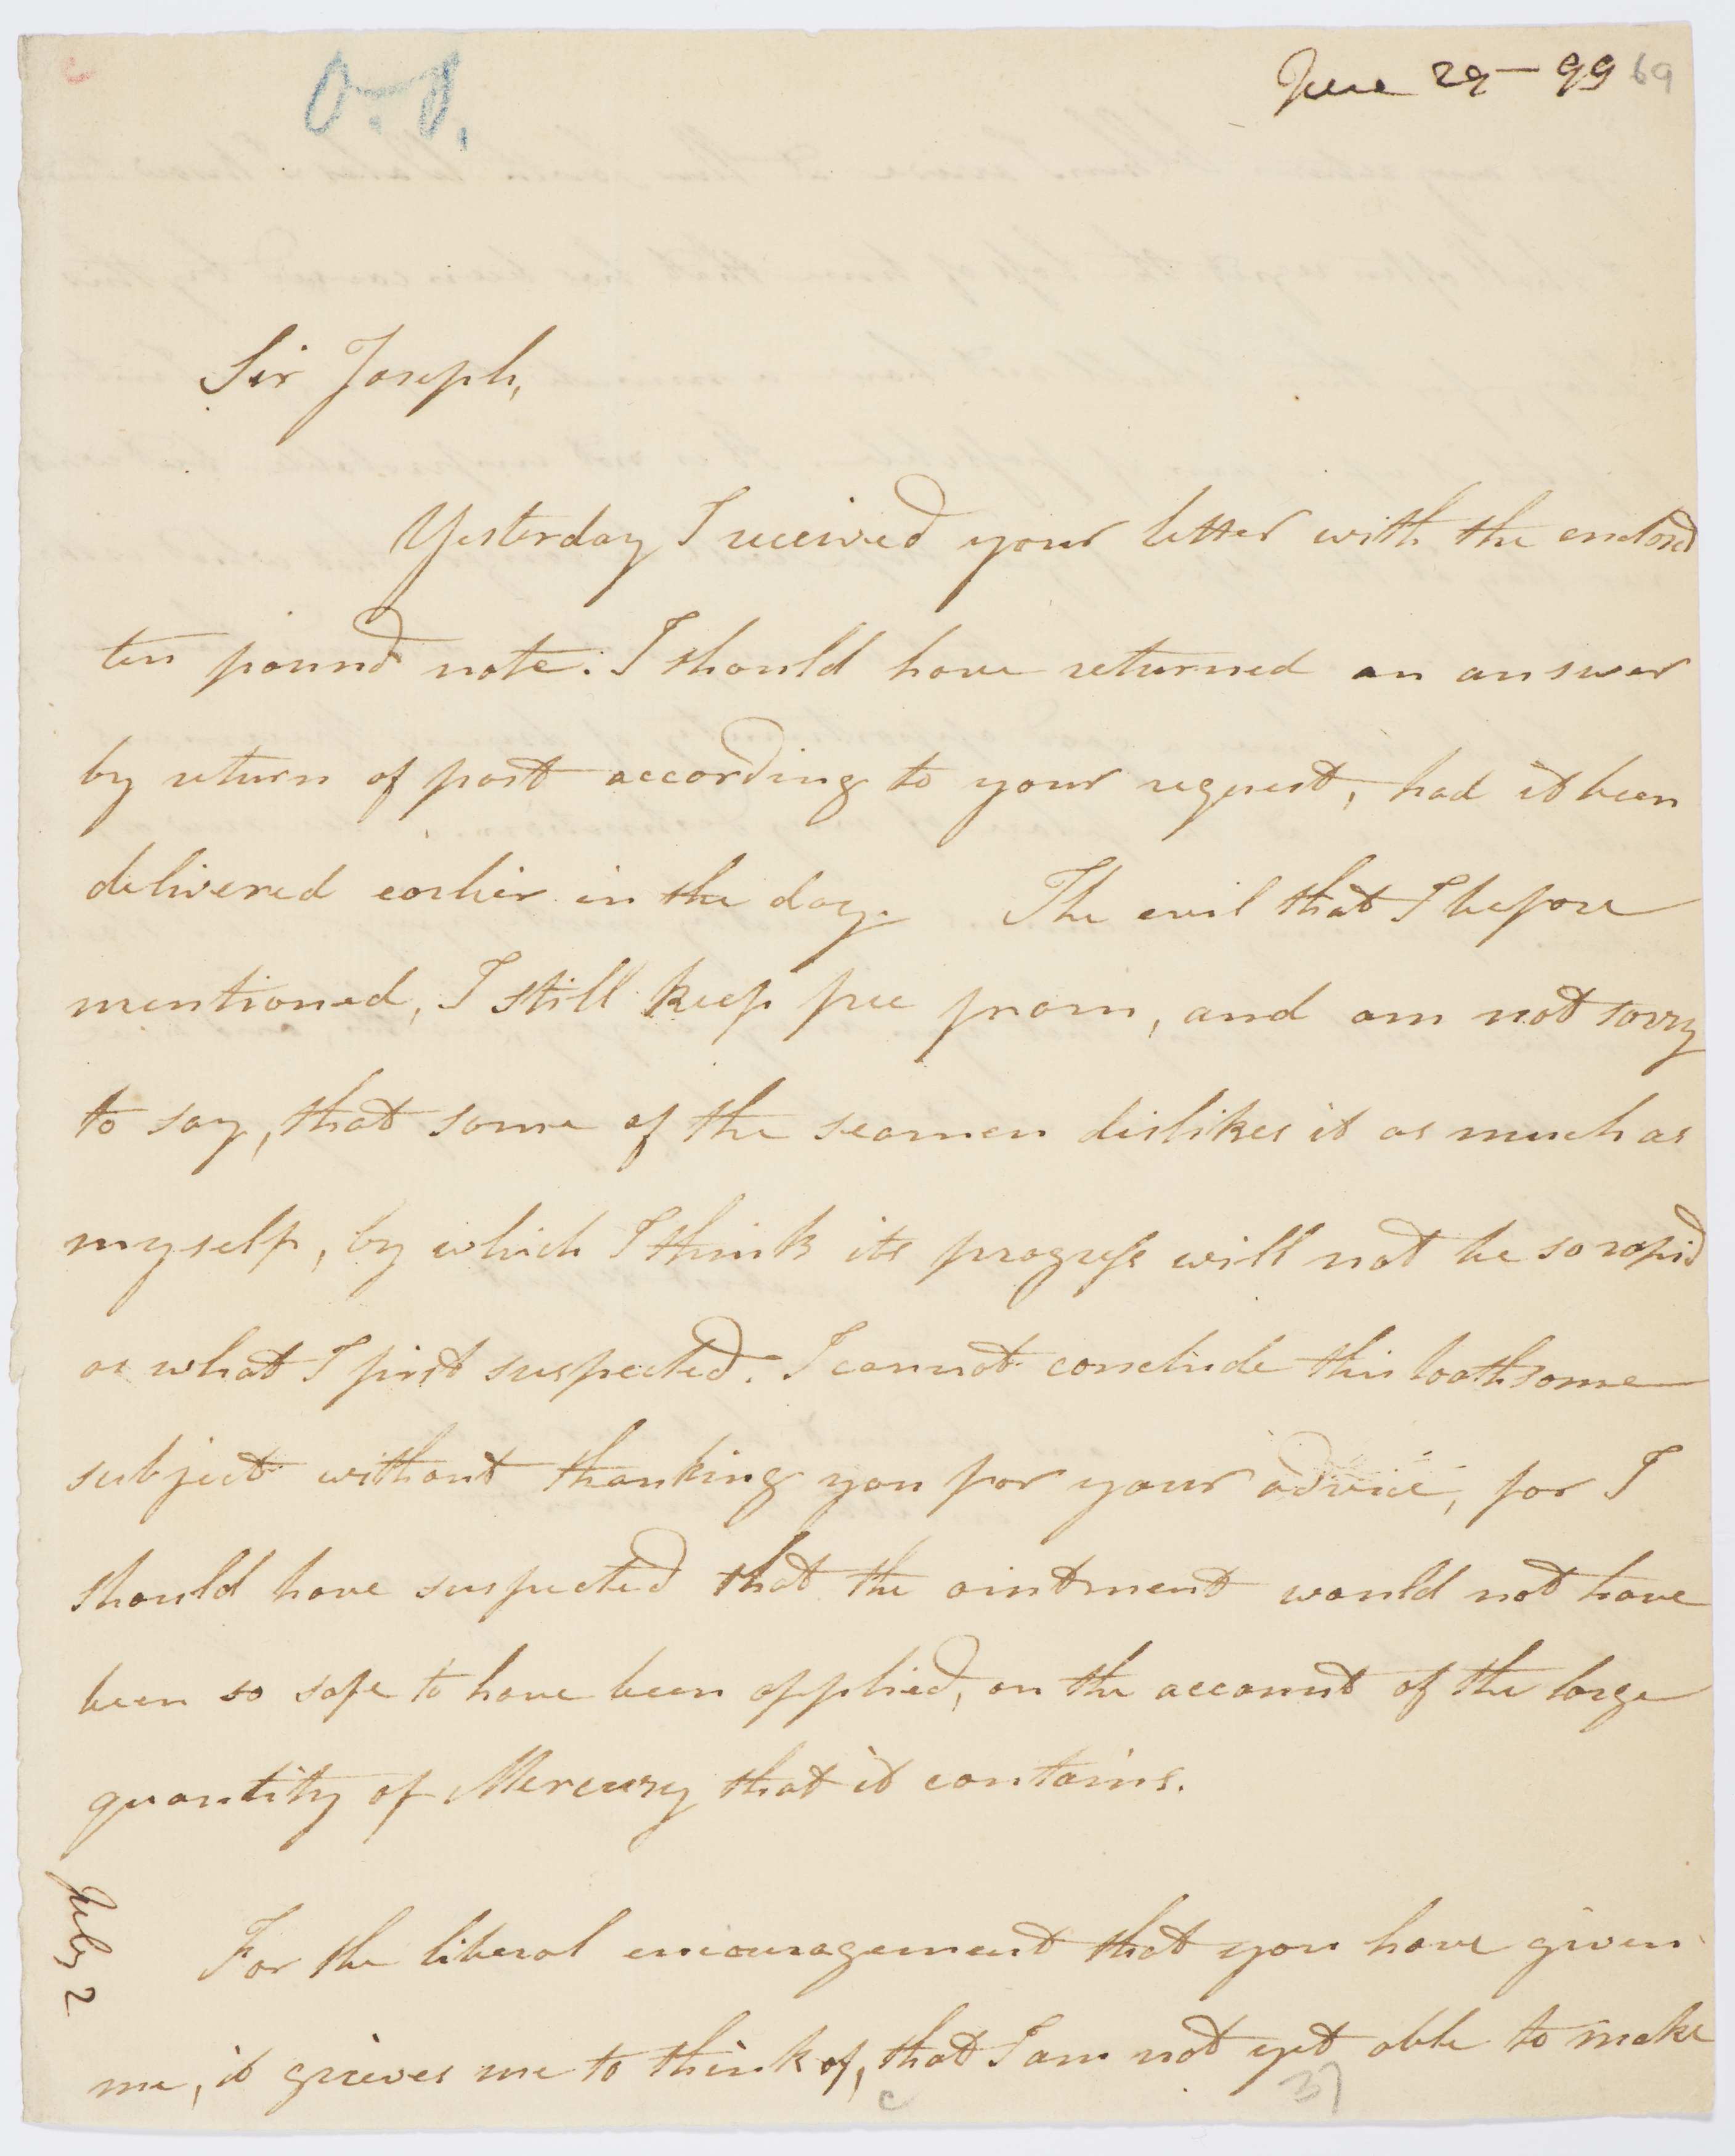 O.J.
June 29 - 99 69
Sir Joseph,
Yesterday I received your letter with the enclosed
ten pound note. I should have returned an answer
by return of post according to your request, had it been
delivered earlier in the day. The evil that I before
mentioned, I still keep free from, and am not sorry
to say, that some of the seamen dislikes it as much as
myself, by which I think its progress will not be so rapid
as what I first suspected. I cannot conclude this loathsome
subject without thanking you for your advice, for I
should have suspected that the ointment would not have
been so safe to have been applied, on the account of the large
quantity of Mercury that it contains.
For the liberal encouragement that you have given
me, it grieves me to think of, that I am not yet able to make
July 2
c
37